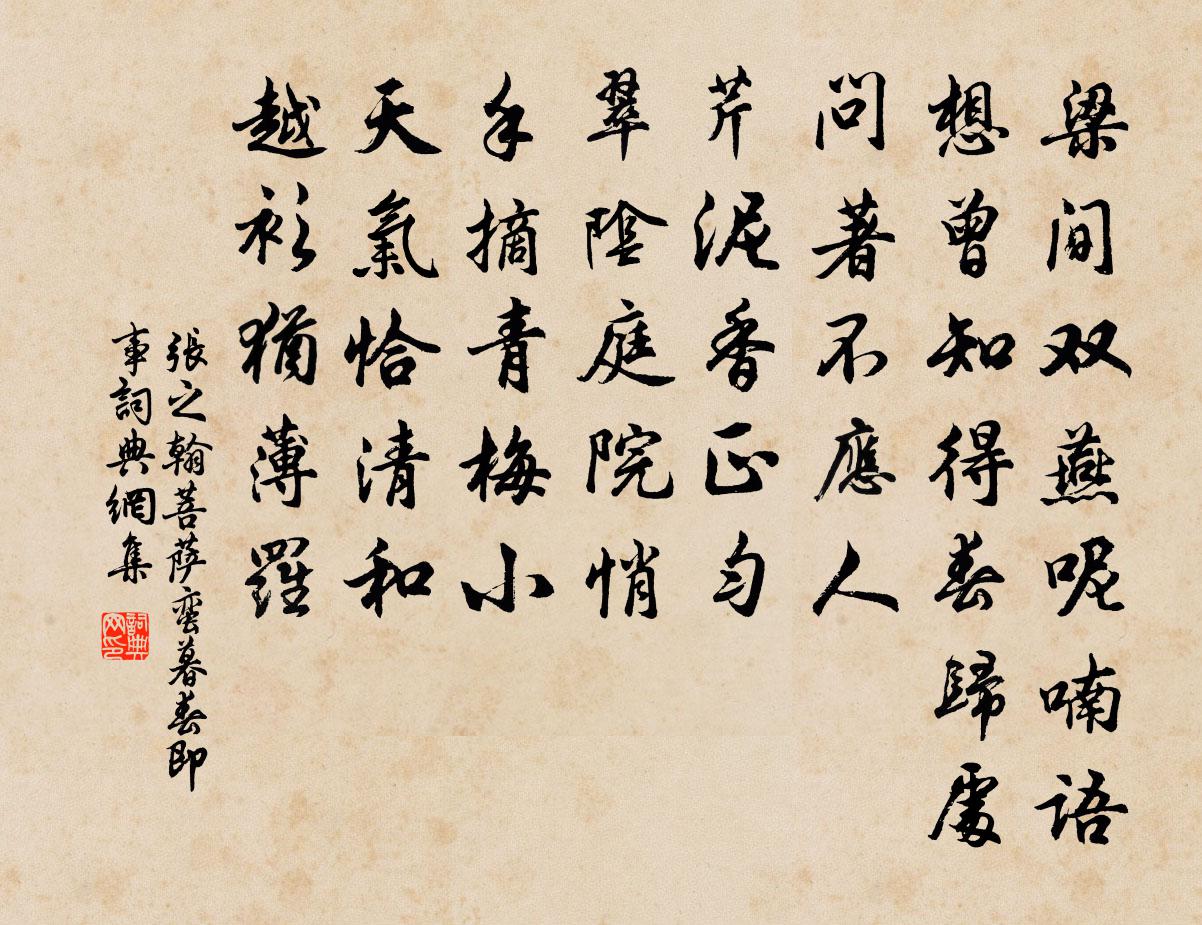 梁间双燕呢喃语
想曾知得春歸處
問著不應人
芹泥香正勻
翠陰庭院悄
手摘青梅小
天氣恰清和
越衫猶薄羅
張之翰菩薩蠻暮春即
事詞典網集
詞典网印